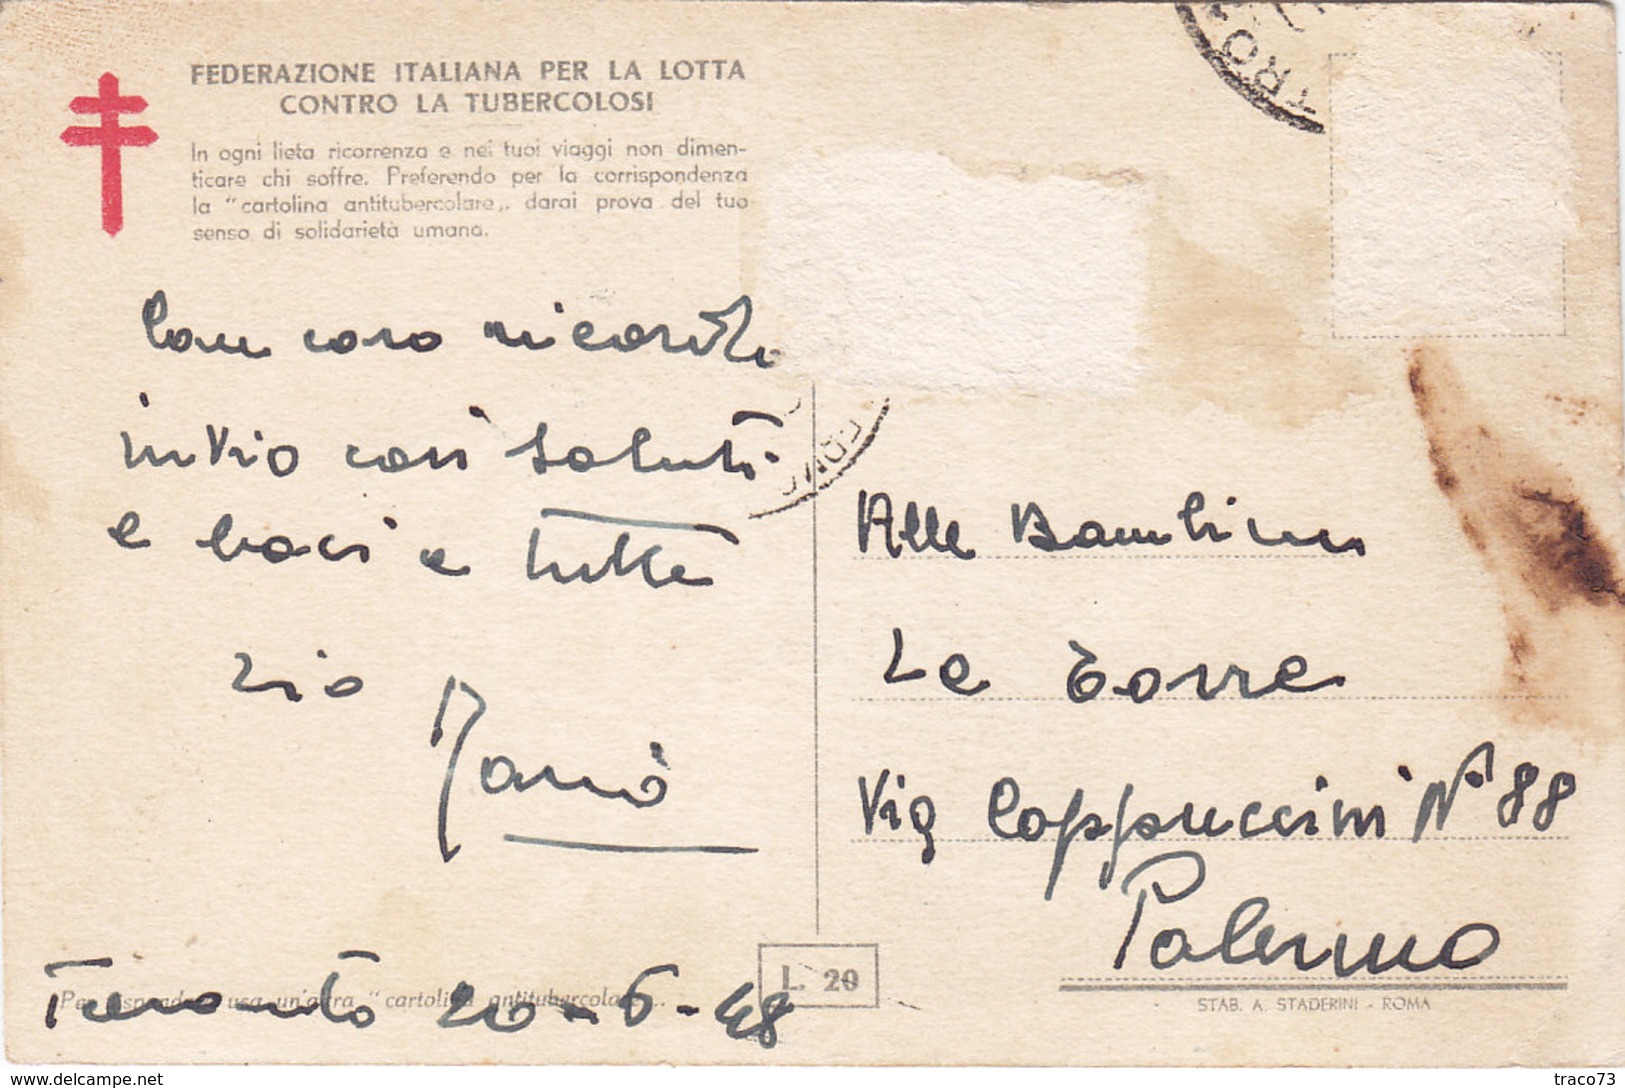 FEDERAZIONE ITALIANA PER LA LOTTA
CONTRO LA TUBERCOLOSI
In ogni lieta ricorrenza e nei tuoi viaggi non dimen-
ticare chi soffre. Preferendo per la corrispondenza
la "cartolina antitubercolare„ darai prova del tuo
senso di solidarietà umana.
Con caro ricordo
invio cari saluti
e baci a tutte
zio
Alle Bambine
La Torre
Via Cappuccini N° 88
Palermo
L. 20
Per rispondere usa un'altra "cartolina antitubercolare„.
20-6-48
STAB. A. STADERINI - ROMA
www.delcampe.net
traco73